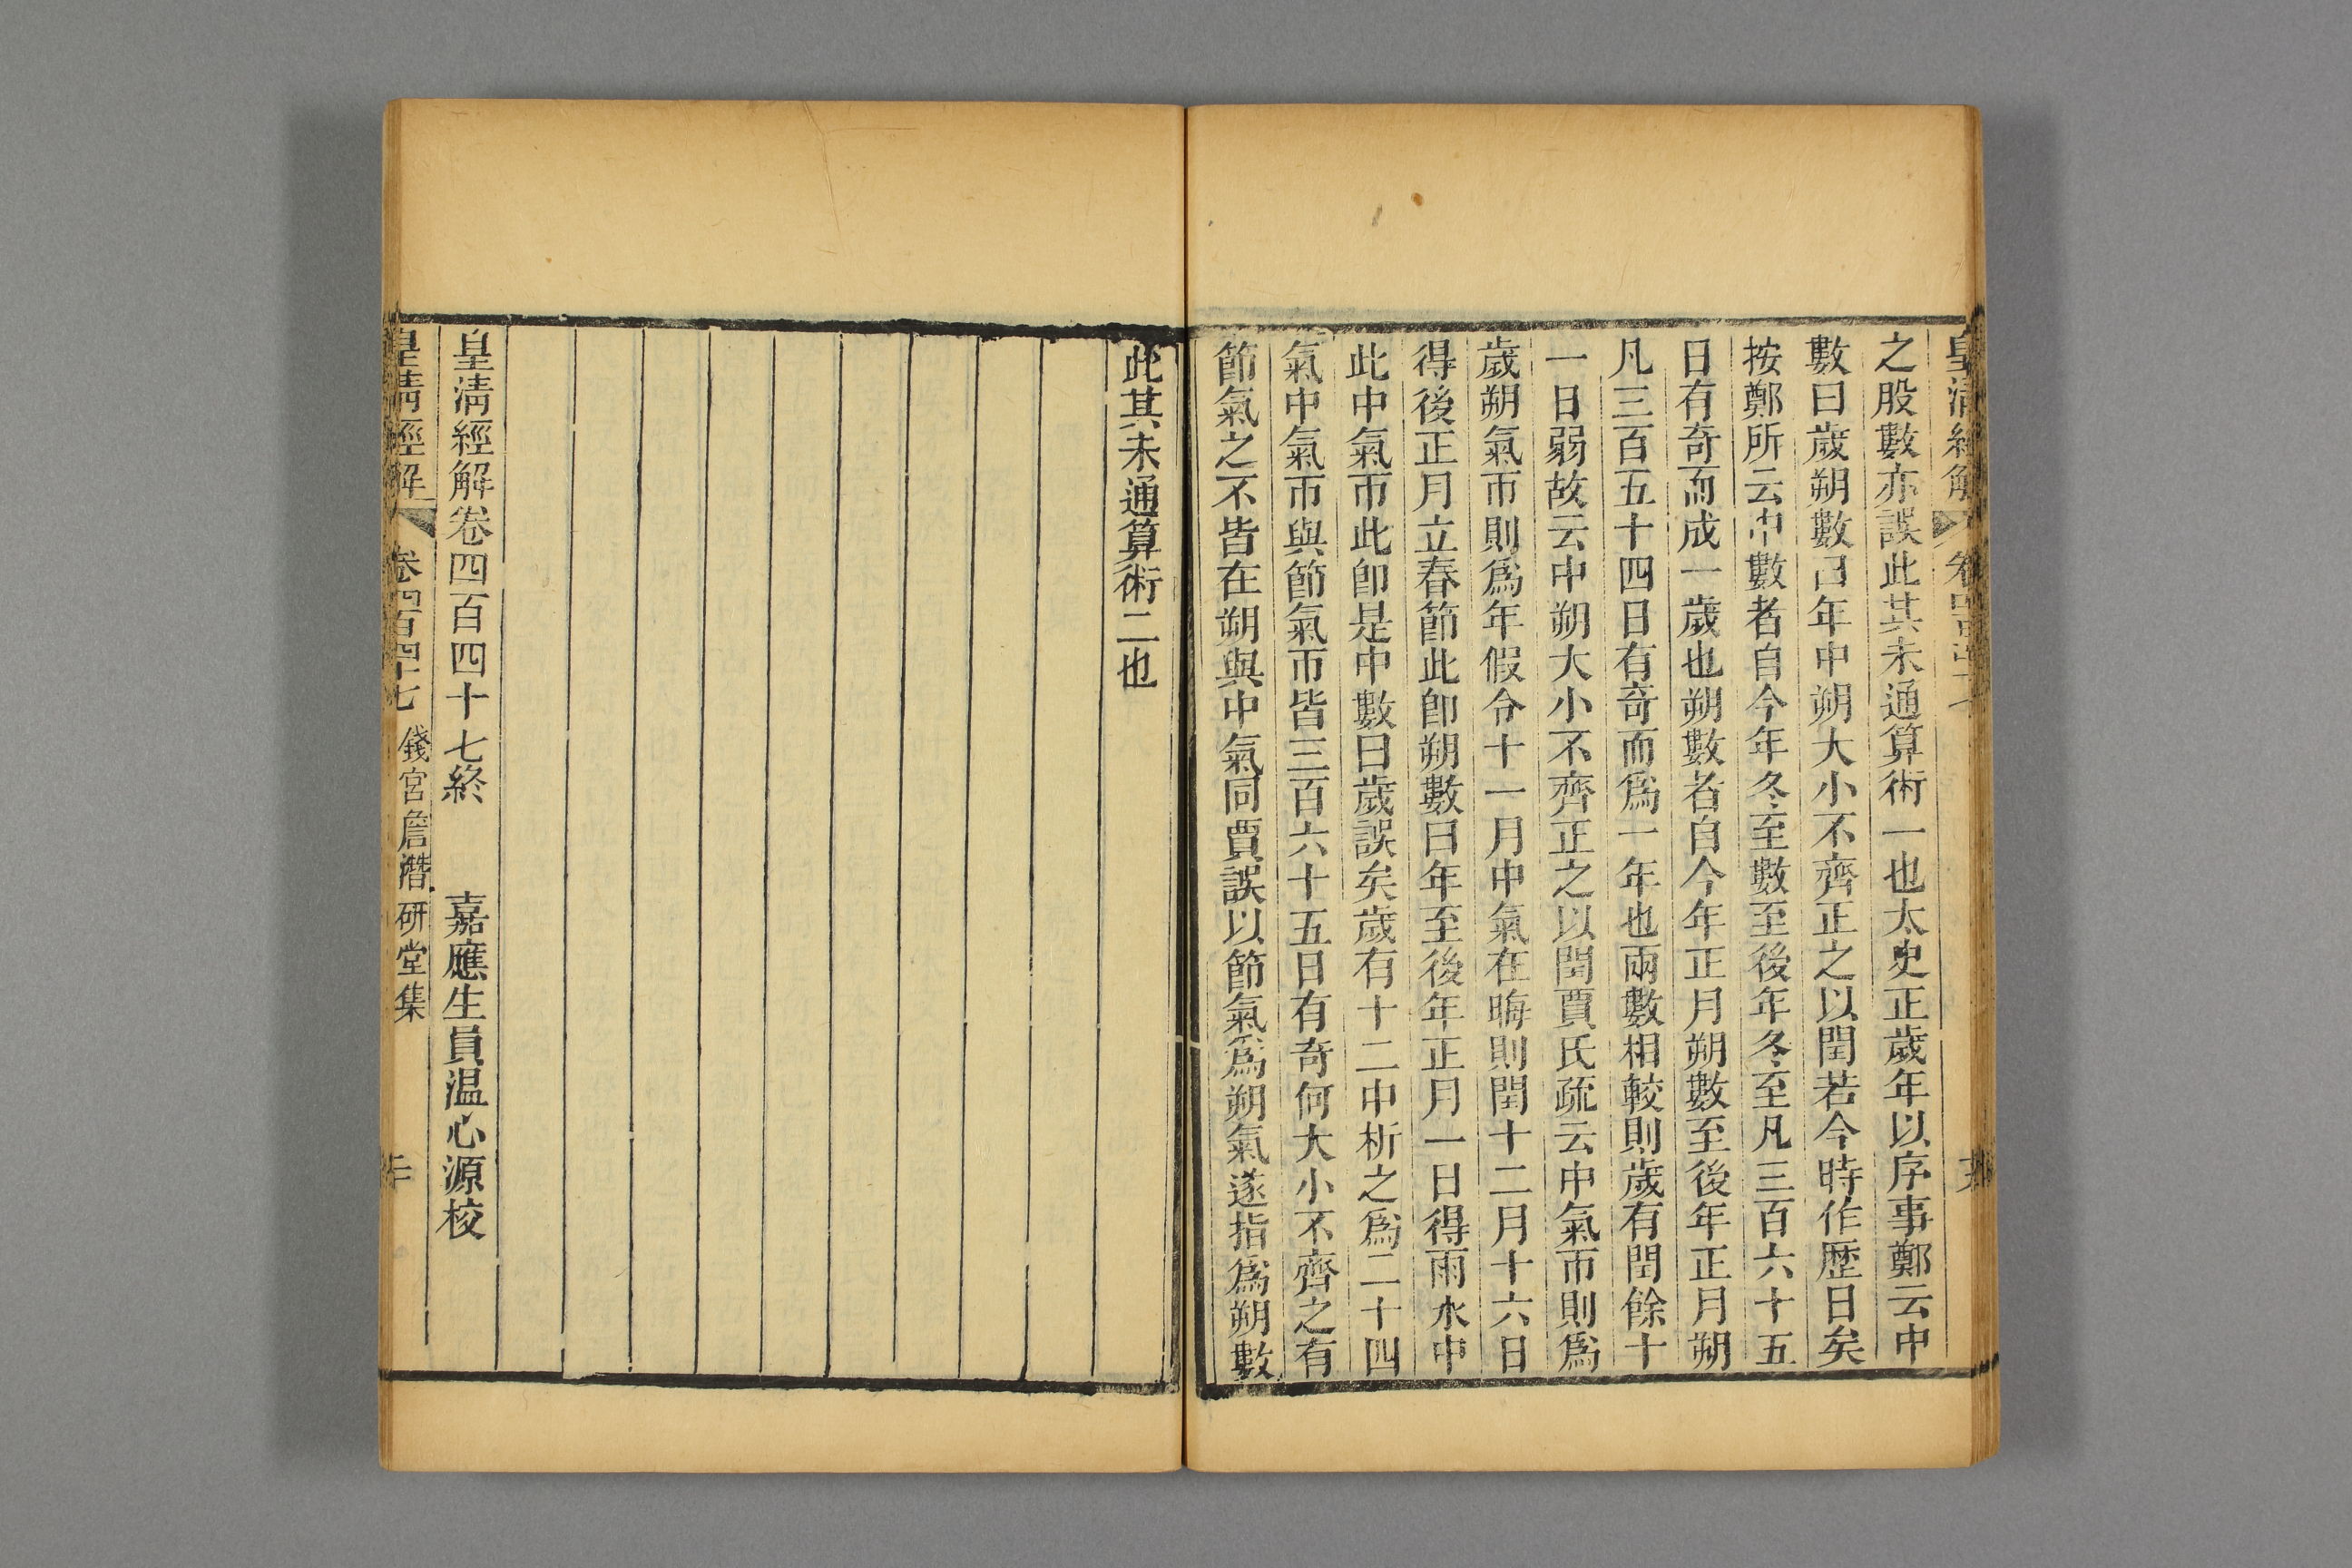 皇清經解
之股數亦誤此其未通算術一也太史正歲年以序事鄭云中
數曰歲朔數曰年中朔大小不齊正之以閏若今時作歷日矣
按鄭所云中數者自今年冬至數至後年冬至凡三百六十五
日有奇而成一歲也朔數者自今年正月朔數至後年正月朔
凡三百五十四日有奇而爲一年也兩數相較則歲有閏餘十
一日弱故云中朔大小不齊正之以閏賈氏疏云中氣帀則爲
歲朔氣帀則爲年假令十一月中氣在晦則閏十二月十六日
得後正月立春節此卽朔數曰年至後年正月一日得雨水中
此中氣帀此卽是中數曰歲誤矣歲有十二中析之爲二十四
氣中氣帀與節氣帀皆三百六十五日有奇何大小不齊之有
節氣之不皆在朔與中氣同賈誤以節氣爲朔氣遂指爲朔數
此其未通算術二也
皇清經解卷四百四十七終 嘉應生員温心源校
皇清經解 卷四百四十七 錢宮詹潛研堂集